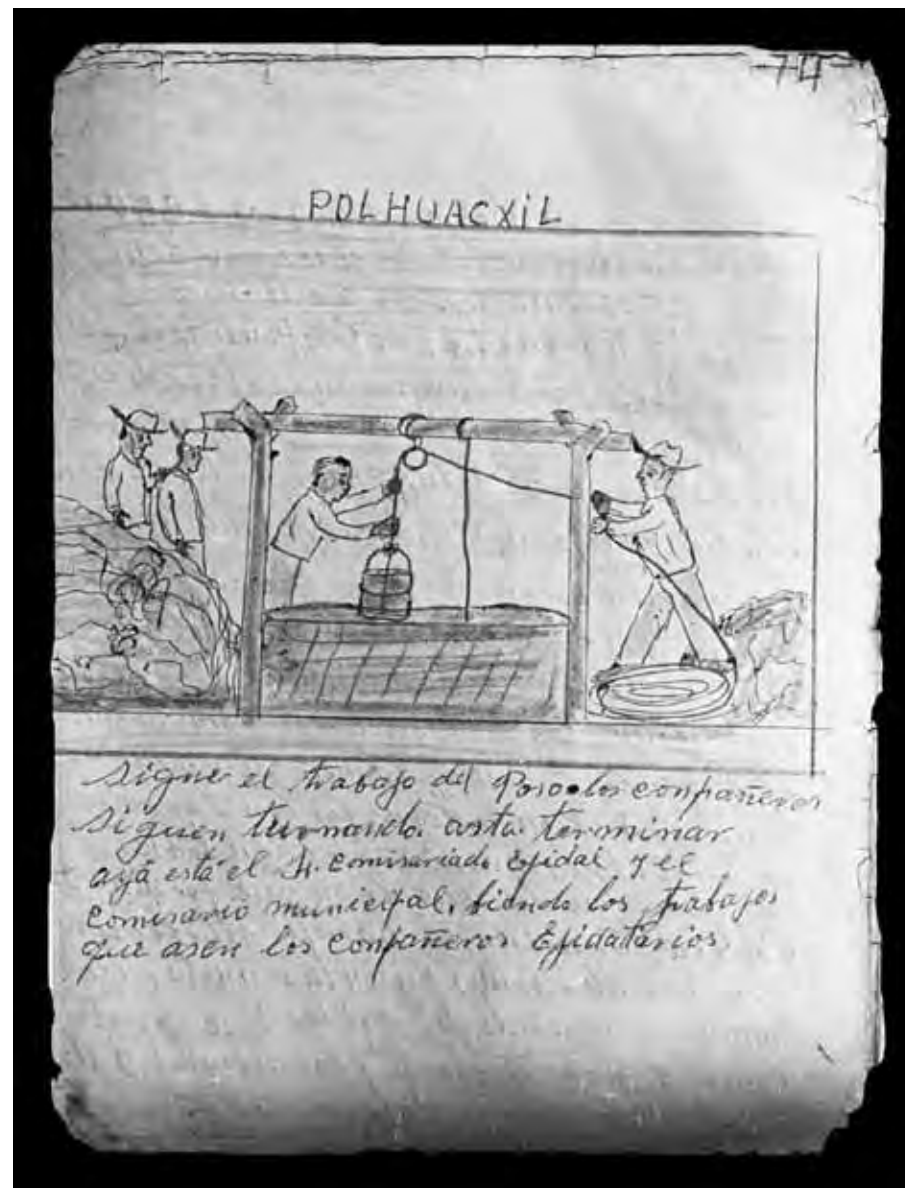 74
POLHUACXiL
sigue el trabajo del Poso los conpañeros
siguen turnando asta terminar
ayá está el Sr. Comisariado Ejidal y el
comisario municipal, biendo los trabajos
que asen los conpañeros Ejidatarios.